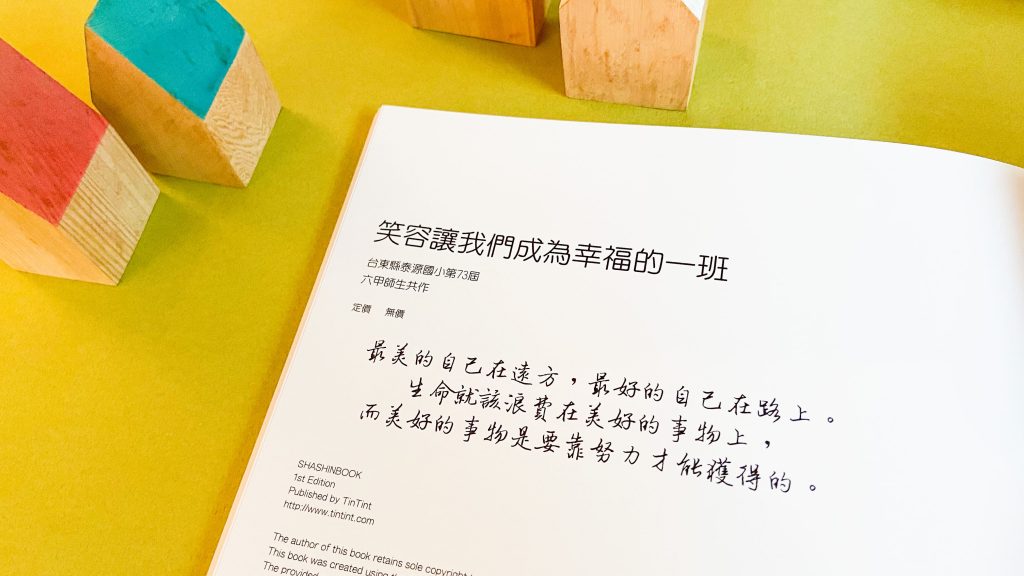 笑容讓我們成為幸福的一班
台東縣泰源國小第73屆
六甲師生共作
定價 無價
最美的自己在遠方，最好的自己在路上。
生命就該浪費在美好的事物上，
而美好的事物是要靠努力才能獲得的。
SHASHINBOOK
1st Edition
Published by TinTint
http://www.tintint.com
The author of this book retains sole copyright
This book was created using
The provided